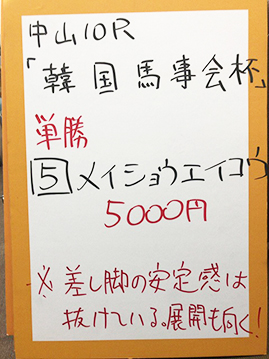 中山10R
「韓国馬事会杯」
単勝
5 メイショウエイコウ
5000円
※差し脚の安定感は
抜けている。展開も向く!